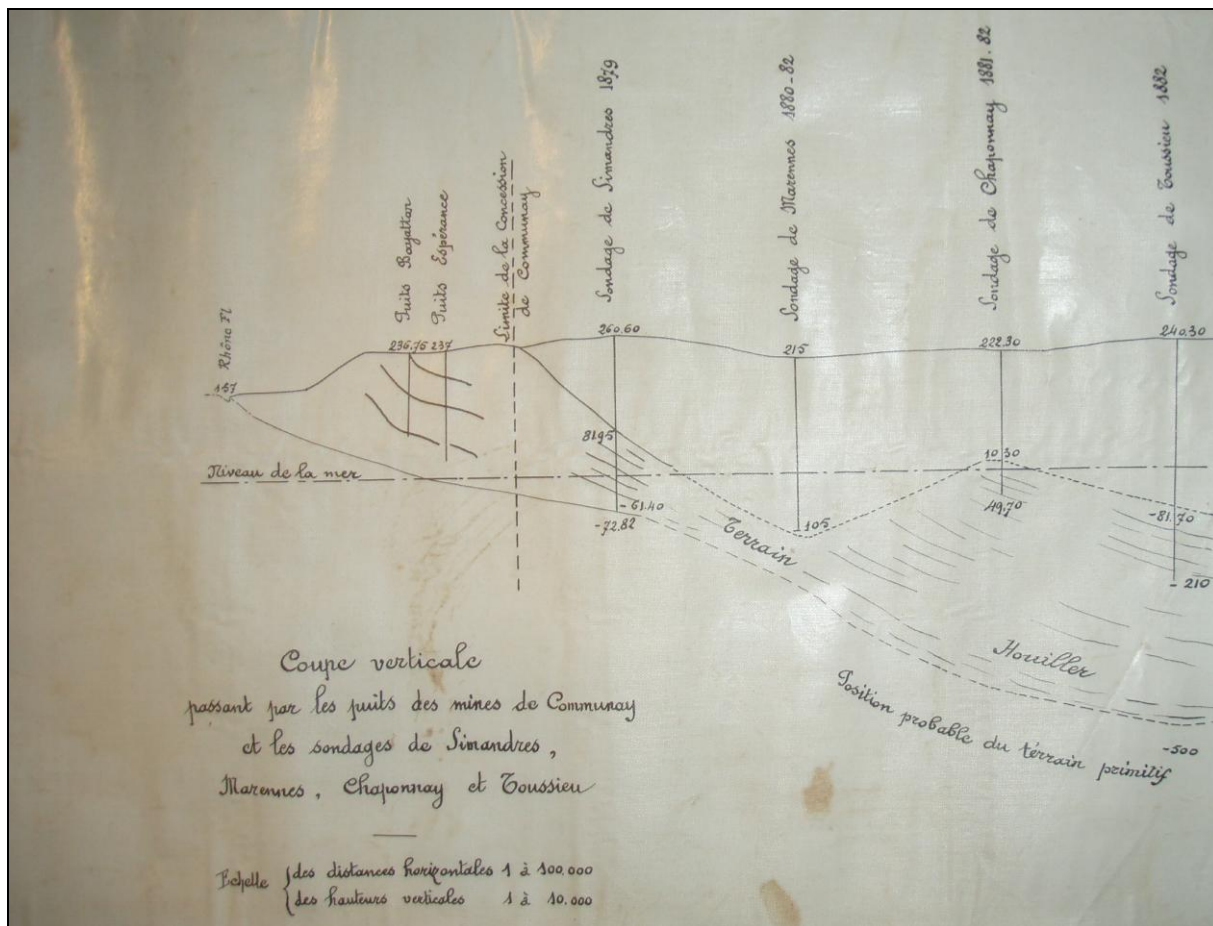 Rhône Fl
Puits Bayettan
Puits Espérance
Limite de la Concession
de Communay
Sondage de Simandres 1879
Sondage de Marennes 1880-82
Sondage de Chaponnay 1881.82
Sondage de Toussieu 1882
157
236.75
237
260.60
215
222.30
240.30
81.95
Niveau de la mer
10.30
- 61.40
- 72.82
- 105
49.70
- 81.70
- 210
Terrain
Houiller
Position probable du térrain primitif
- 500
Coupe verticale
passant par les puits des mines de Communay
et les sondages de Simandres,
Marennes, Chaponnay et Toussieu
Echelle
des distances horizontales 1 à 100.000
des hauteurs verticales 1 à 10.000